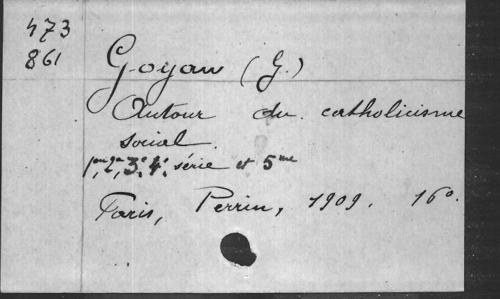 473
861
Goyau (G.)
Autour du catholicisme
social.
3e 4e série et 5me
Paris, Perrin, 1909. 16º.